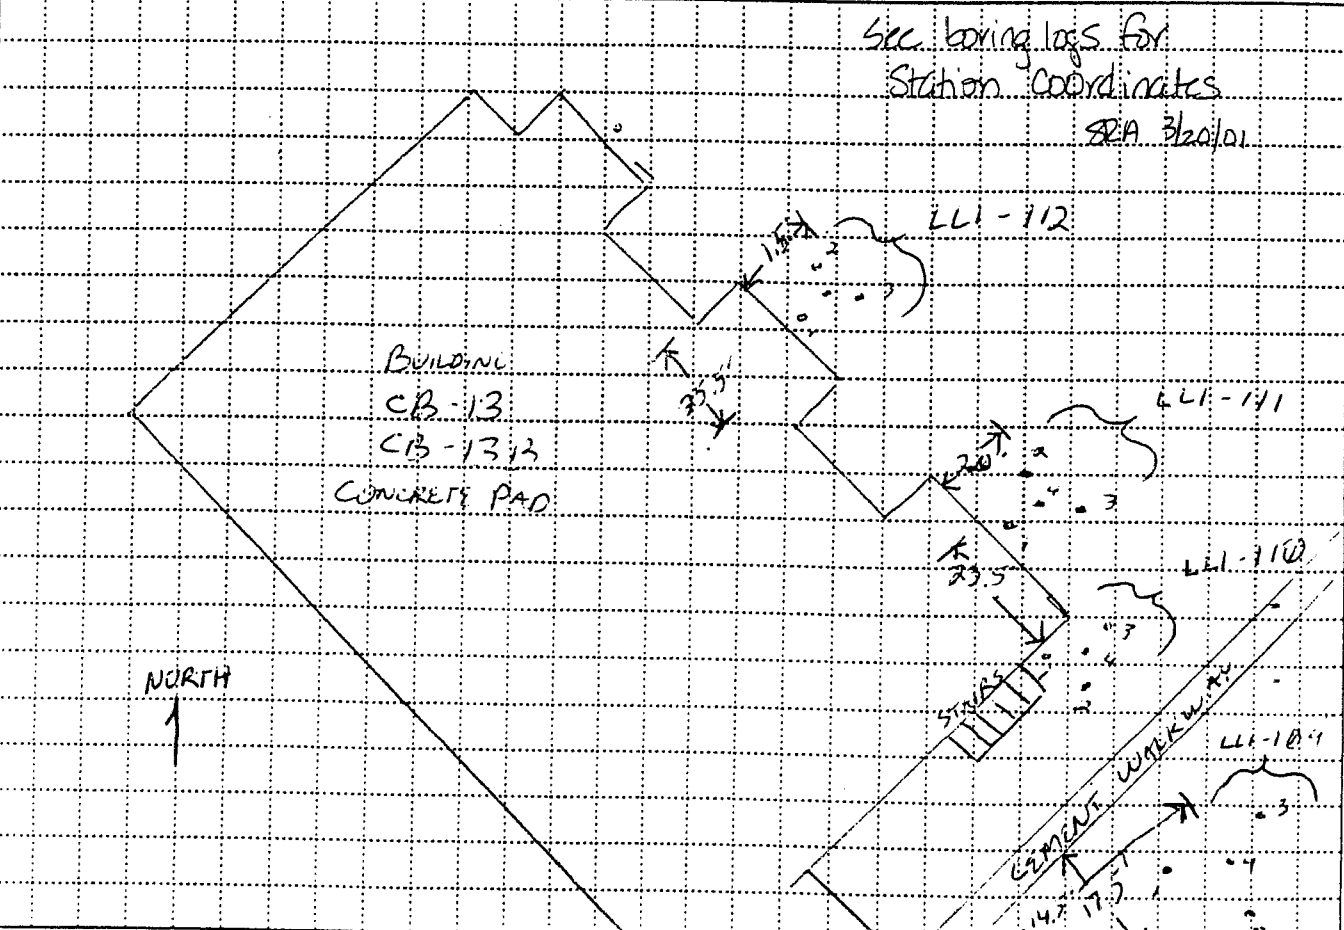 See boring logs for
Station Coordinates
SRA 3/20/01
LL1-112
1.5'
2
3
BUILDING
CB-13
CB-13B
CONCRETE PAD
LL1-111
2.0'
2
4
3
1
23.5
LL1-110
3
4
2
NORTH
STAIRS
CEMENT WALKWAY
LL1-109
3
4
1
14.7
17.7